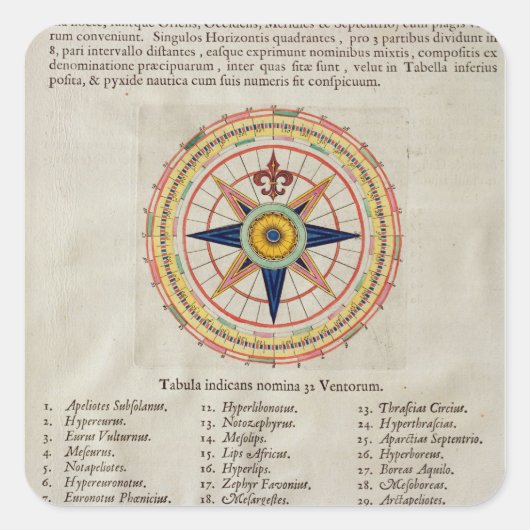 rum conveniunt. Singulos Horizontis quadrantes, pro 3 partibus dividunt in
8, pari intervallo distantes, easque exprimunt nominibus mixtis, compositis ex
denominatione præcipuarum, inter quas sitæ sunt, velut in Tabella inferius
posita, & pyxide nautica cum suis numeris fit conspicuum.
Tabula indicans nomina 32 Ventorum.
1. Apeliotes Subsolanus.
2. Hypereurus.
3. Eurus Vulturnus.
4. Meseurus.
5. Notapeliotes.
6. Hypereuronotus.
7. Euronotus Phœnicius.
12. Hyperlibonotus.
13. Notozephyrus.
14. Mesolips.
15. Lips Africus.
16. Hyperlips.
17. Zephyr Favonius.
18. Mesargestes.
23. Thrascias Circius.
24. Hyperthrascias.
25. Aparctias Septentrio.
26. Hyperboreus.
27. Boreas Aquilo.
28. Mesoboreas.
29. Arctapeliotes.